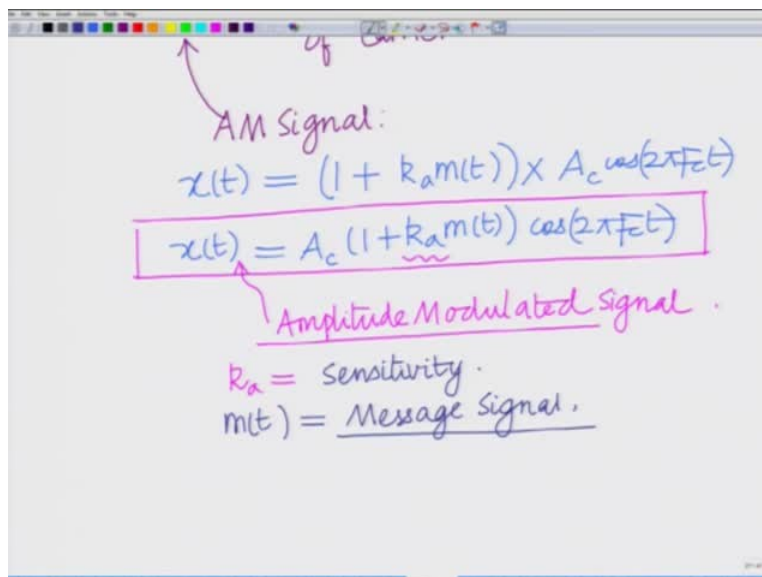 of
AM Signal:
x(t) = (1 + kₐm(t)) × A_c cos(2πF_ct)
x(t) = A_c (1+kₐm(t)) cos(2πF_ct)
Amplitude Modulated Signal.
kₐ = Sensitivity.
m(t) = Message Signal.